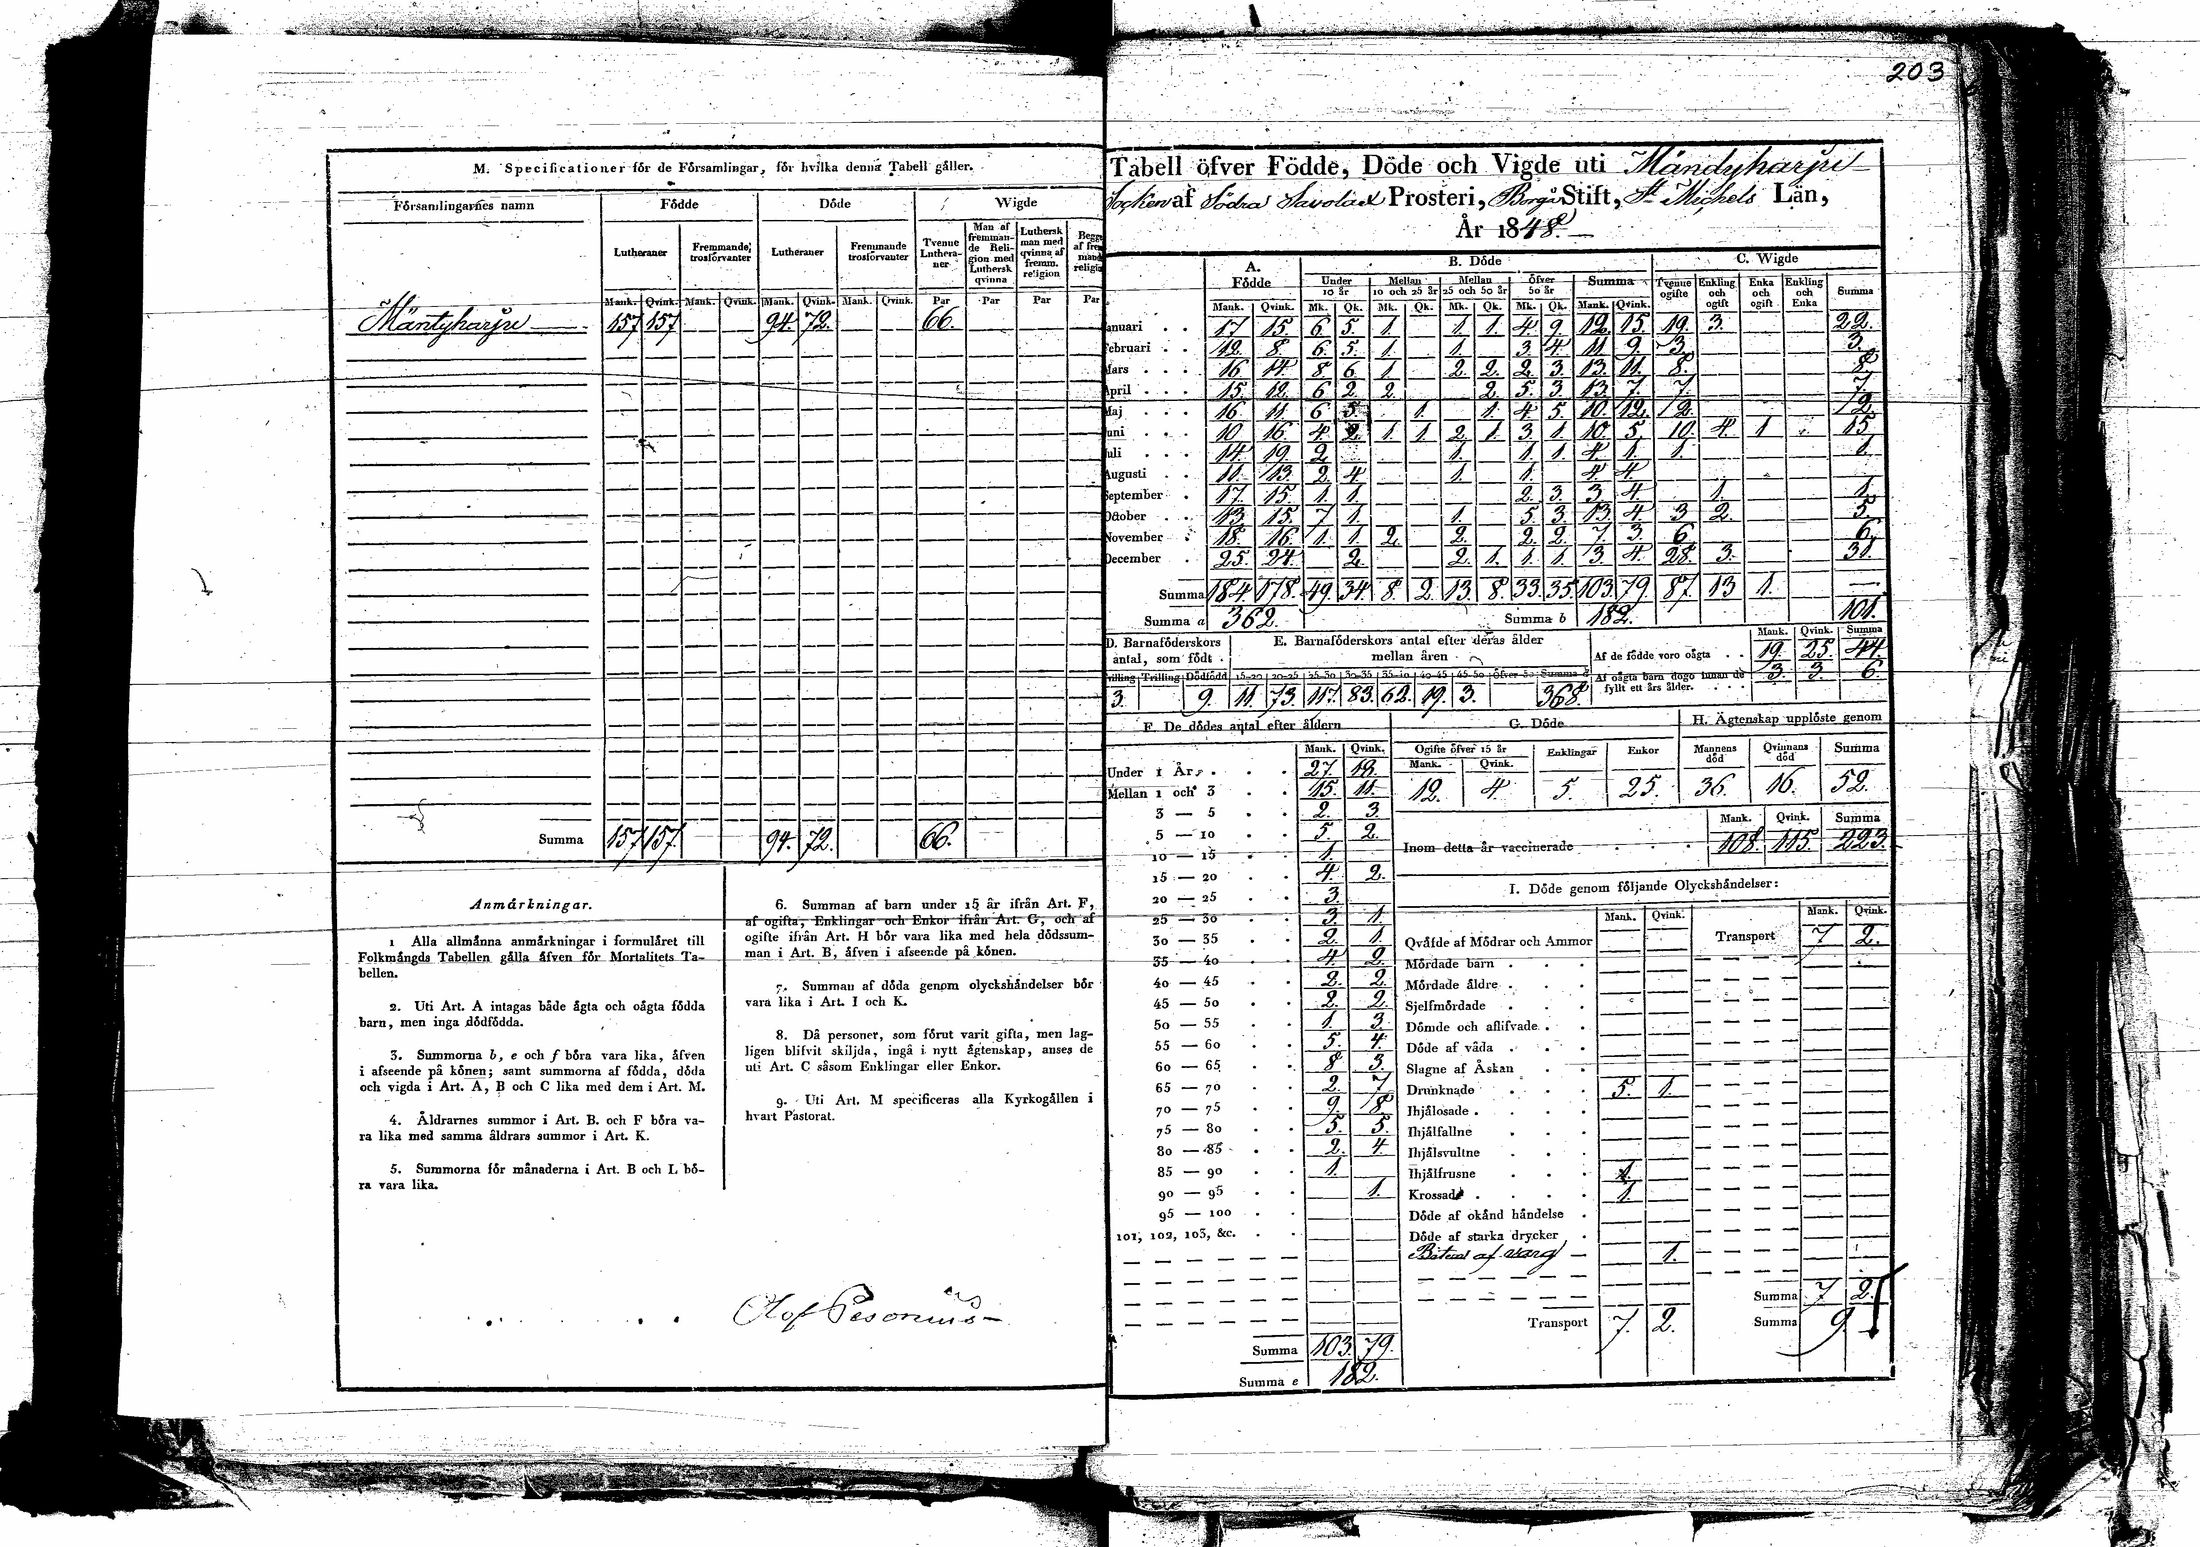 203
M. Specificationer för de Församlingar, för hvilka denna Tabell gäller.
Församlingarnes namn Födde Döde Wigde
Lutheraner Fremmande trosförvanter Lutheraner Fremmande trosförvanter Tvenne Luthera-ner Man af fremman-de Reli-gion med Luthersk qvinna Luthersk man med qvinna af fremm. religion
Mank. Qvink. Mank. Qvink. Mank. Qvink. Mank. Qvink. Par Par Par Par
Mäntyharju 157 157 94. 72. 66.
Summa 157 157. 94. 72. 66.
Anmärkningar.
1 Alla allmänna anmärkningar i formuläret till
Folkmängds Tabellen gälla äfven för Mortalitets Ta-
bellen.
2. Uti Art. A intagas både ägta och oägta födda
barn, men inga dödfödda.
3. Summorna b, e och f böra vara lika, äfven
i afseende på könen; samt summorna af födda, döda
och vigda i Art. A, B och C lika med dem i Art. M.
4. Åldrarnes summor i Art. B. och F böra va-
ra lika med samma åldrars summor i Art. K.
5. Summorna för månaderna i Art. B och L bö-
ra vara lika.
6. Summan af barn under 15 år ifrån Art. F,
af ogifta, Enklingar och Enkor ifrån Art. G, och af
ogifte ifrån Art. H bör vara lika med hela dödssum-
man i Art. B, äfven i afseende på könen.
7. Summan af döda genom olyckshändelser bör
vara lika i Art. I och K.
8. Då personer, som förut varit gifta, men lag-
ligen blifvit skiljda, ingå i nytt ägtenskap, anses de
uti Art. C såsom Enklingar eller Enkor.
9. Uti Art. M specificeras alla Kyrkogällen i
hvart Pastorat.
Olof Pesonius
Tabell öfver Födde, Döde och Vigde uti Mändyharju
Socken af Södra Savolax Prosteri, Borgå Stift, St Michels Län,
År 1848.
A. Födde B. Döde C. Wigde
Under 10 år Mellan 10 och 25 år Mellan 25 och 50 år Öfver 50 år Summa Tvenne ogifte Enkling och ogift Enka och ogift Enkling och Enka Summa
Mank. Qvink. Mk. Qk. Mk. Qk. Mk. Qk. Mk. Qk. Mank. Qvink.
anuari 17 15 6 5. 1. 1. 1. 4. 9. 12. 15. 19. 3. 22.
ebruari 12. 8. 6. 5. 1. 1. 3. 4. 11. 9. 3. 3.
Mars 16 14 8 6 1. 2. 2. 2. 3. 13. 11. 8. 8
April 15. 12. 6 2. 2. 2. 5. 3. 13. 7. 7. 7.
Maj 16. 11. 6 5. 1. 1. 4. 5. 10. 12. 12. 12.
uni 10 16. 4. 2. 1. 1. 2. 1. 3. 1. 10. 5. 10. 4. 1 15
uli 14. 19. 2. 1. 1. 1. 4. 1. 1. 1.
Augusti 11. 13. 2. 4. 1. 1. 4. 4.
September 17. 15. 1. 1. 2. 3. 3. 4. 1. 1.
October 13. 15. 7. 1. 1. 5. 3. 13. 4. 3 2. 5.
November 18. 16. 1. 1. 2. 2. 2. 2. 7. 3. 6 6.
December 25. 24. 2. 2. 1. 1. 1. 3. 4. 28. 3. 31.
Summa 184. 178. 49. 34. 8. 2. 13. 8. 33. 35. 103. 79. 87. 13 1.
Summa a 362. Summa b 182. 101.
D. Barnaföderskors antal, som födt E. Barnaföderskors antal efter deras ålder mellan åren
Trilling Dödfödd 15-20 20-25 25-30 30-35 35-40 40-45 45-50 Öfver 50 Summa
3. 9. 11. 73. 117. 83. 62. 19. 3. 368.
Mank. Qvink. Summa
Af de födde voro oägta 19. 25. 44.
Af oägta barn dogo innan de fyllt ett års ålder. 3. 3. 6.
F. De dödes antal efter åldern
Mank. Qvink.
Under 1 År 27. 18.
Mellan 1 och 3 15. 11.
3 — 5 2. 3.
5 — 10 5. 2.
10 — 15 1.
15 — 20 4. 2.
20 — 25 3.
25 — 30 3. 1.
30 — 35 2. 1.
35 — 40 4. 2.
40 — 45 2. 2.
45 — 50 2. 2.
50 — 55 1. 3.
55 — 60 5. 4.
60 — 65 8 3.
65 — 70 2. 7
70 — 75 9. 8
75 — 80 5. 5.
80 — 85 2. 4.
85 — 90 1.
90 — 95 1.
95 — 100
101, 102, 103, &c.
Summa 103. 79.
Summa e 182.
G. Döde
Ogifte öfver 15 år Enklingar Enkor
Mank. Qvink.
12. 4. 5. 25.
H. Ägtenskap upplöste genom
Mannens död Qvinnans död Summa
36. 16. 52.
Mank. Qvink. Summa
Inom detta år vaccinerade 108. 115. 223.
I. Döde genom följande Olyckshändelser:
Mank. Qvink. Mank. Qvink.
Qväfde af Mödrar och Ammor Transport 7 2.
Mördade barn
Mördade äldre
Sjelfmördade
Dömde och aflifvade
Döde af våda
Slagne af Åskan
Drunknade 5. 1.
Ihjälosade
Ihjälfallne
Ihjälsvultne
Ihjälfrusne 1.
Krossade 1.
Döde af okänd händelse
Döde af starka drycker
Biten af varg 1.
Summa 7 2.
Transport 7. 2. Summa 9.